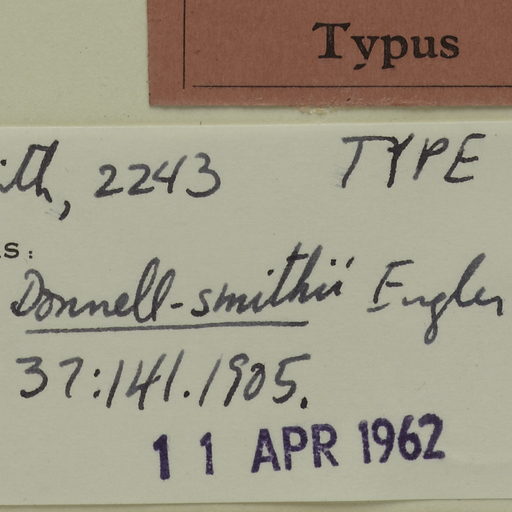 Typus
ith, 2243 TYPE
s:
Donnell-smithii Engler
37:141.1905.
11 APR 1962